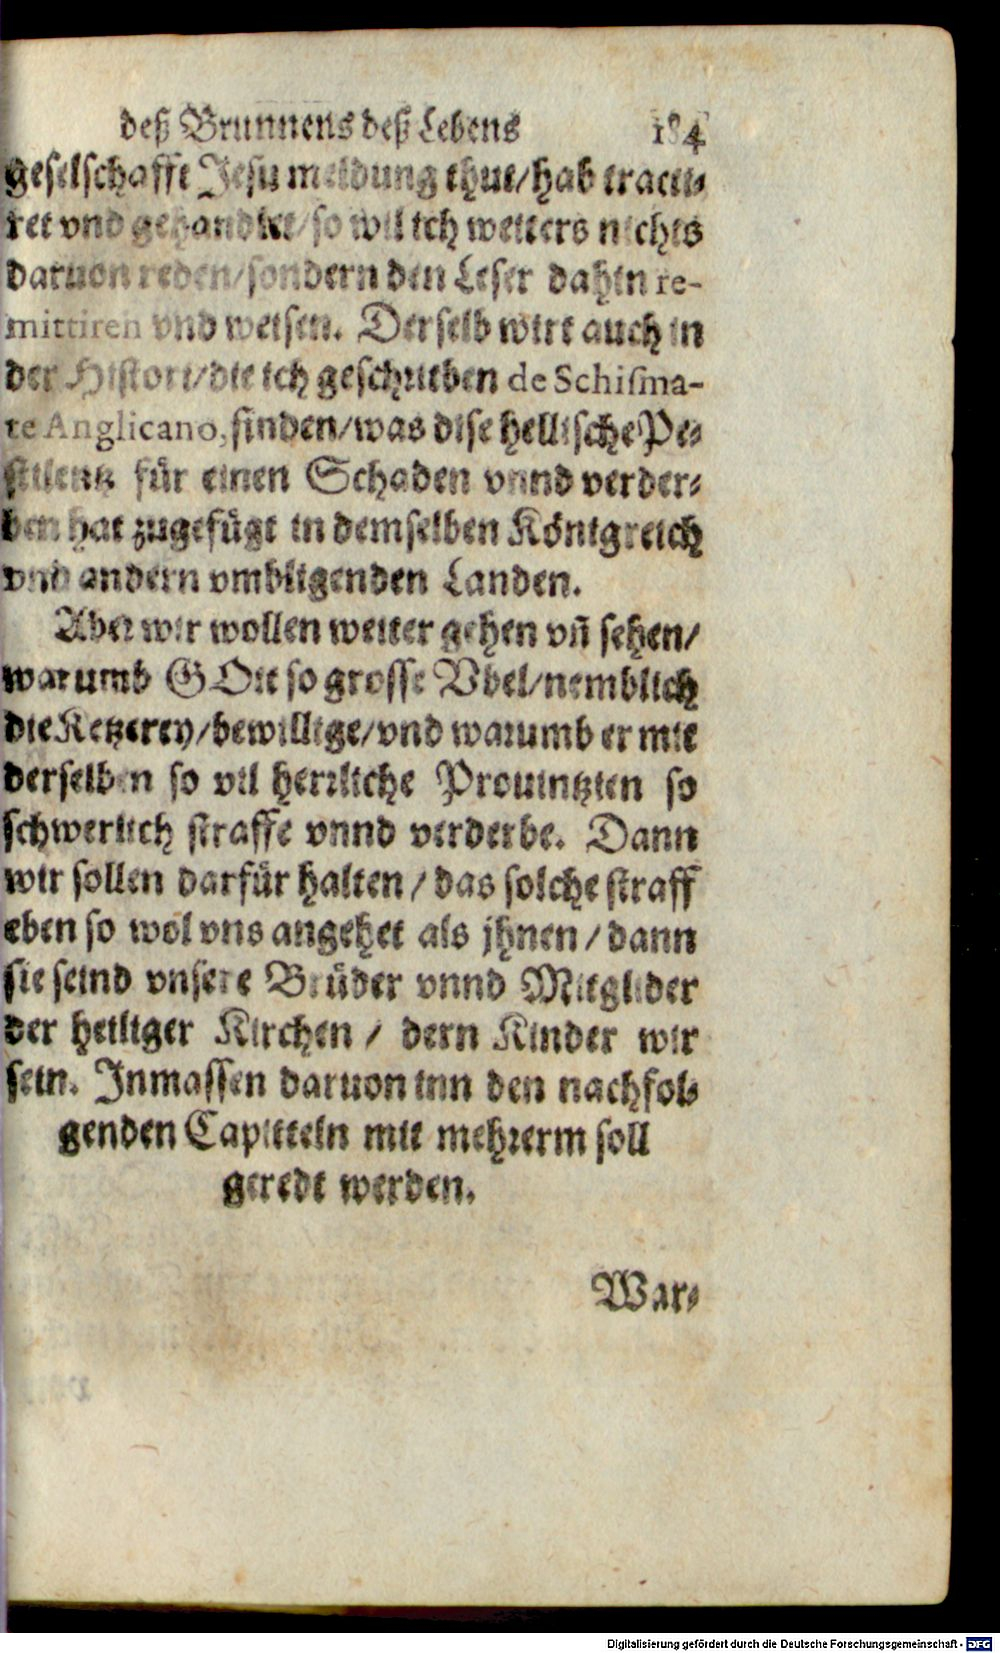 deß Brunnens deß Lebens 184
geselschafft Jesu meldung thut/hab tracti-
ret vnd gehandlet/so wil ich weiters nichts
daruon reden/sondern den Leser dahin re-
mittiren vnd weisen. Derselb wirt auch in
der Histori/die ich geschriben de Schiſma-
te Anglicano, finden/was dise hellische Pe-
stilentz für einen Schaden vnnd verder-
ben hat zugefügt in demselben Königreich
vnd andern vmbligenden Landen.
Aber wir wollen weiter gehen vñ sehen/
warumb GOtt so grosse Vbel/nemblich
die Ketzerey/bewillige/vnd warumb er mit
derselben so vil herrliche Prouintzien so
schwerlich straffe vnnd verderbe. Dann
wir sollen darfür halten/das solche straff
eben so wol vns angehet als jhnen/dann
sie seind vnsere Brüder vnnd Mitglider
der heiliger Kirchen/dern Kinder wir
sein. Inmassen daruon inn den nachfol-
genden Capitteln mit mehrerm soll
geredt werden.
War-
Digitalisierung gefördert durch die Deutsche Forschungsgemeinschaft - DFG